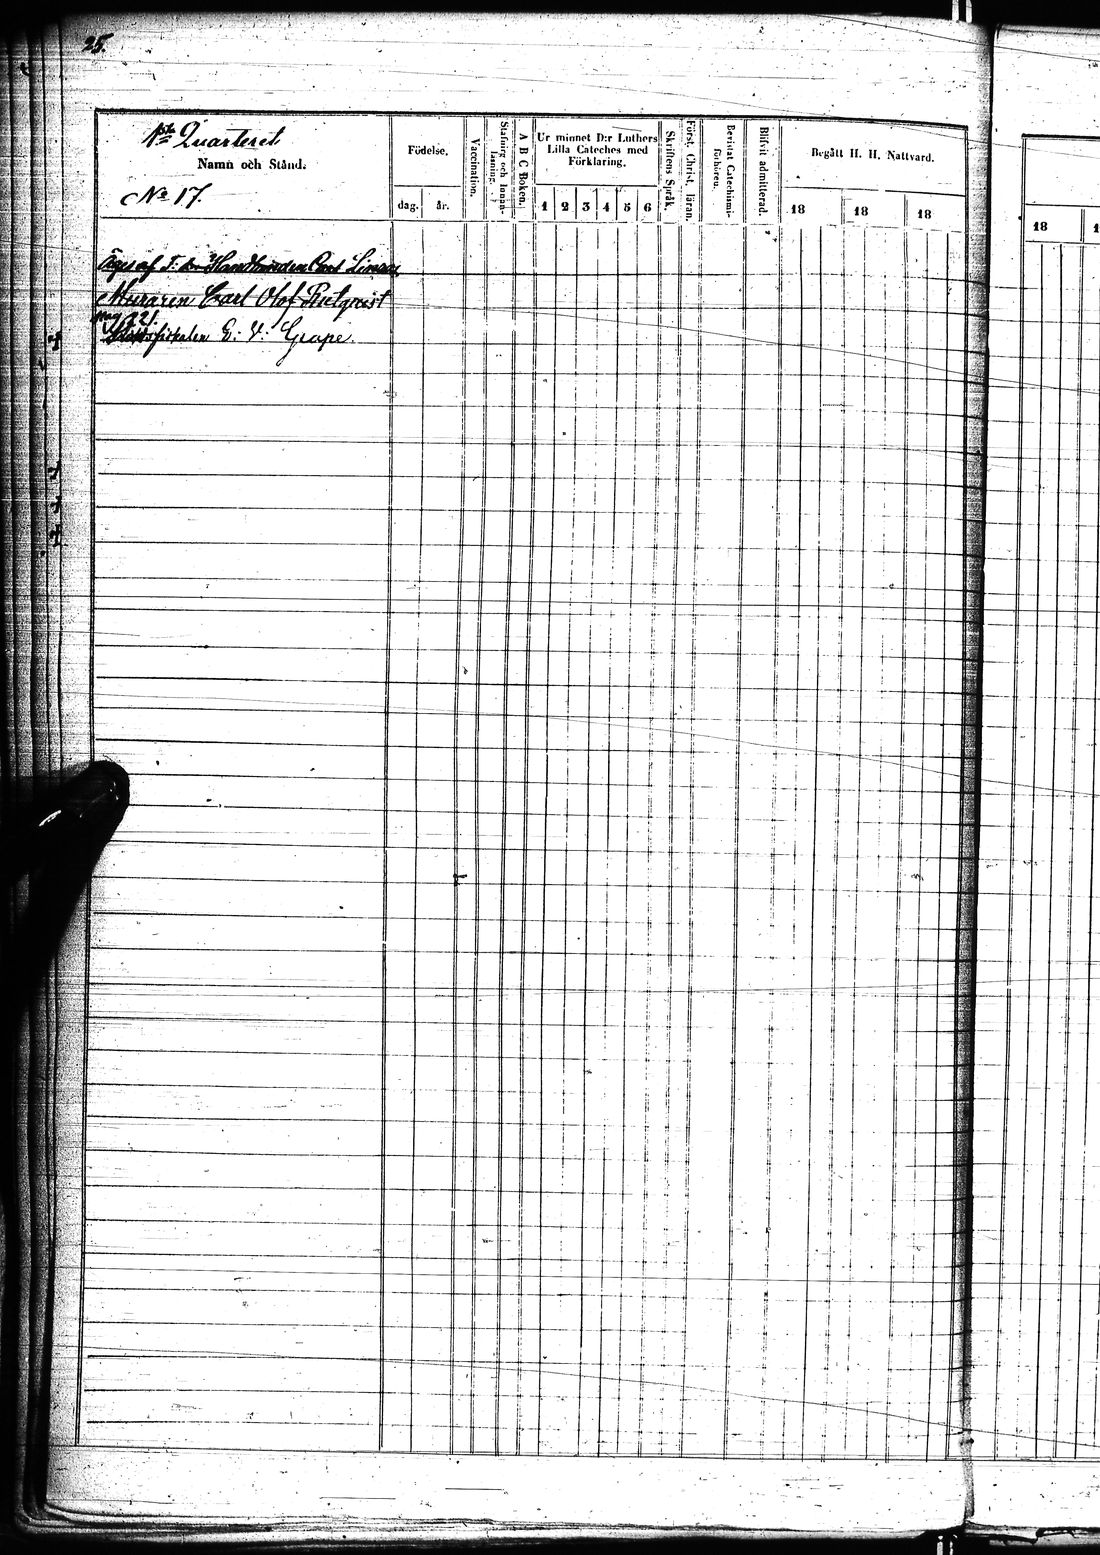 25.
1sta Quarteret
Namn och Stånd.
No 17.
Födelse.
dag. år.
Vaccination.
Stafning och Innan-
läsning.
A B C Boken.
Ur minnet D:r Luthers
Lilla Cateches med
Förklaring.
1 2 3 4 5 6
Skriftens Språk.
Först. Christ. Läran.
Bevistat Catechismi-
förhören.
Blifvit admitterad.
Begått H. H. Nattvard.
18 18 18
18 1
Äges af Handlanden
Muraren Carl Olof
pag 72
E: V: Grape.